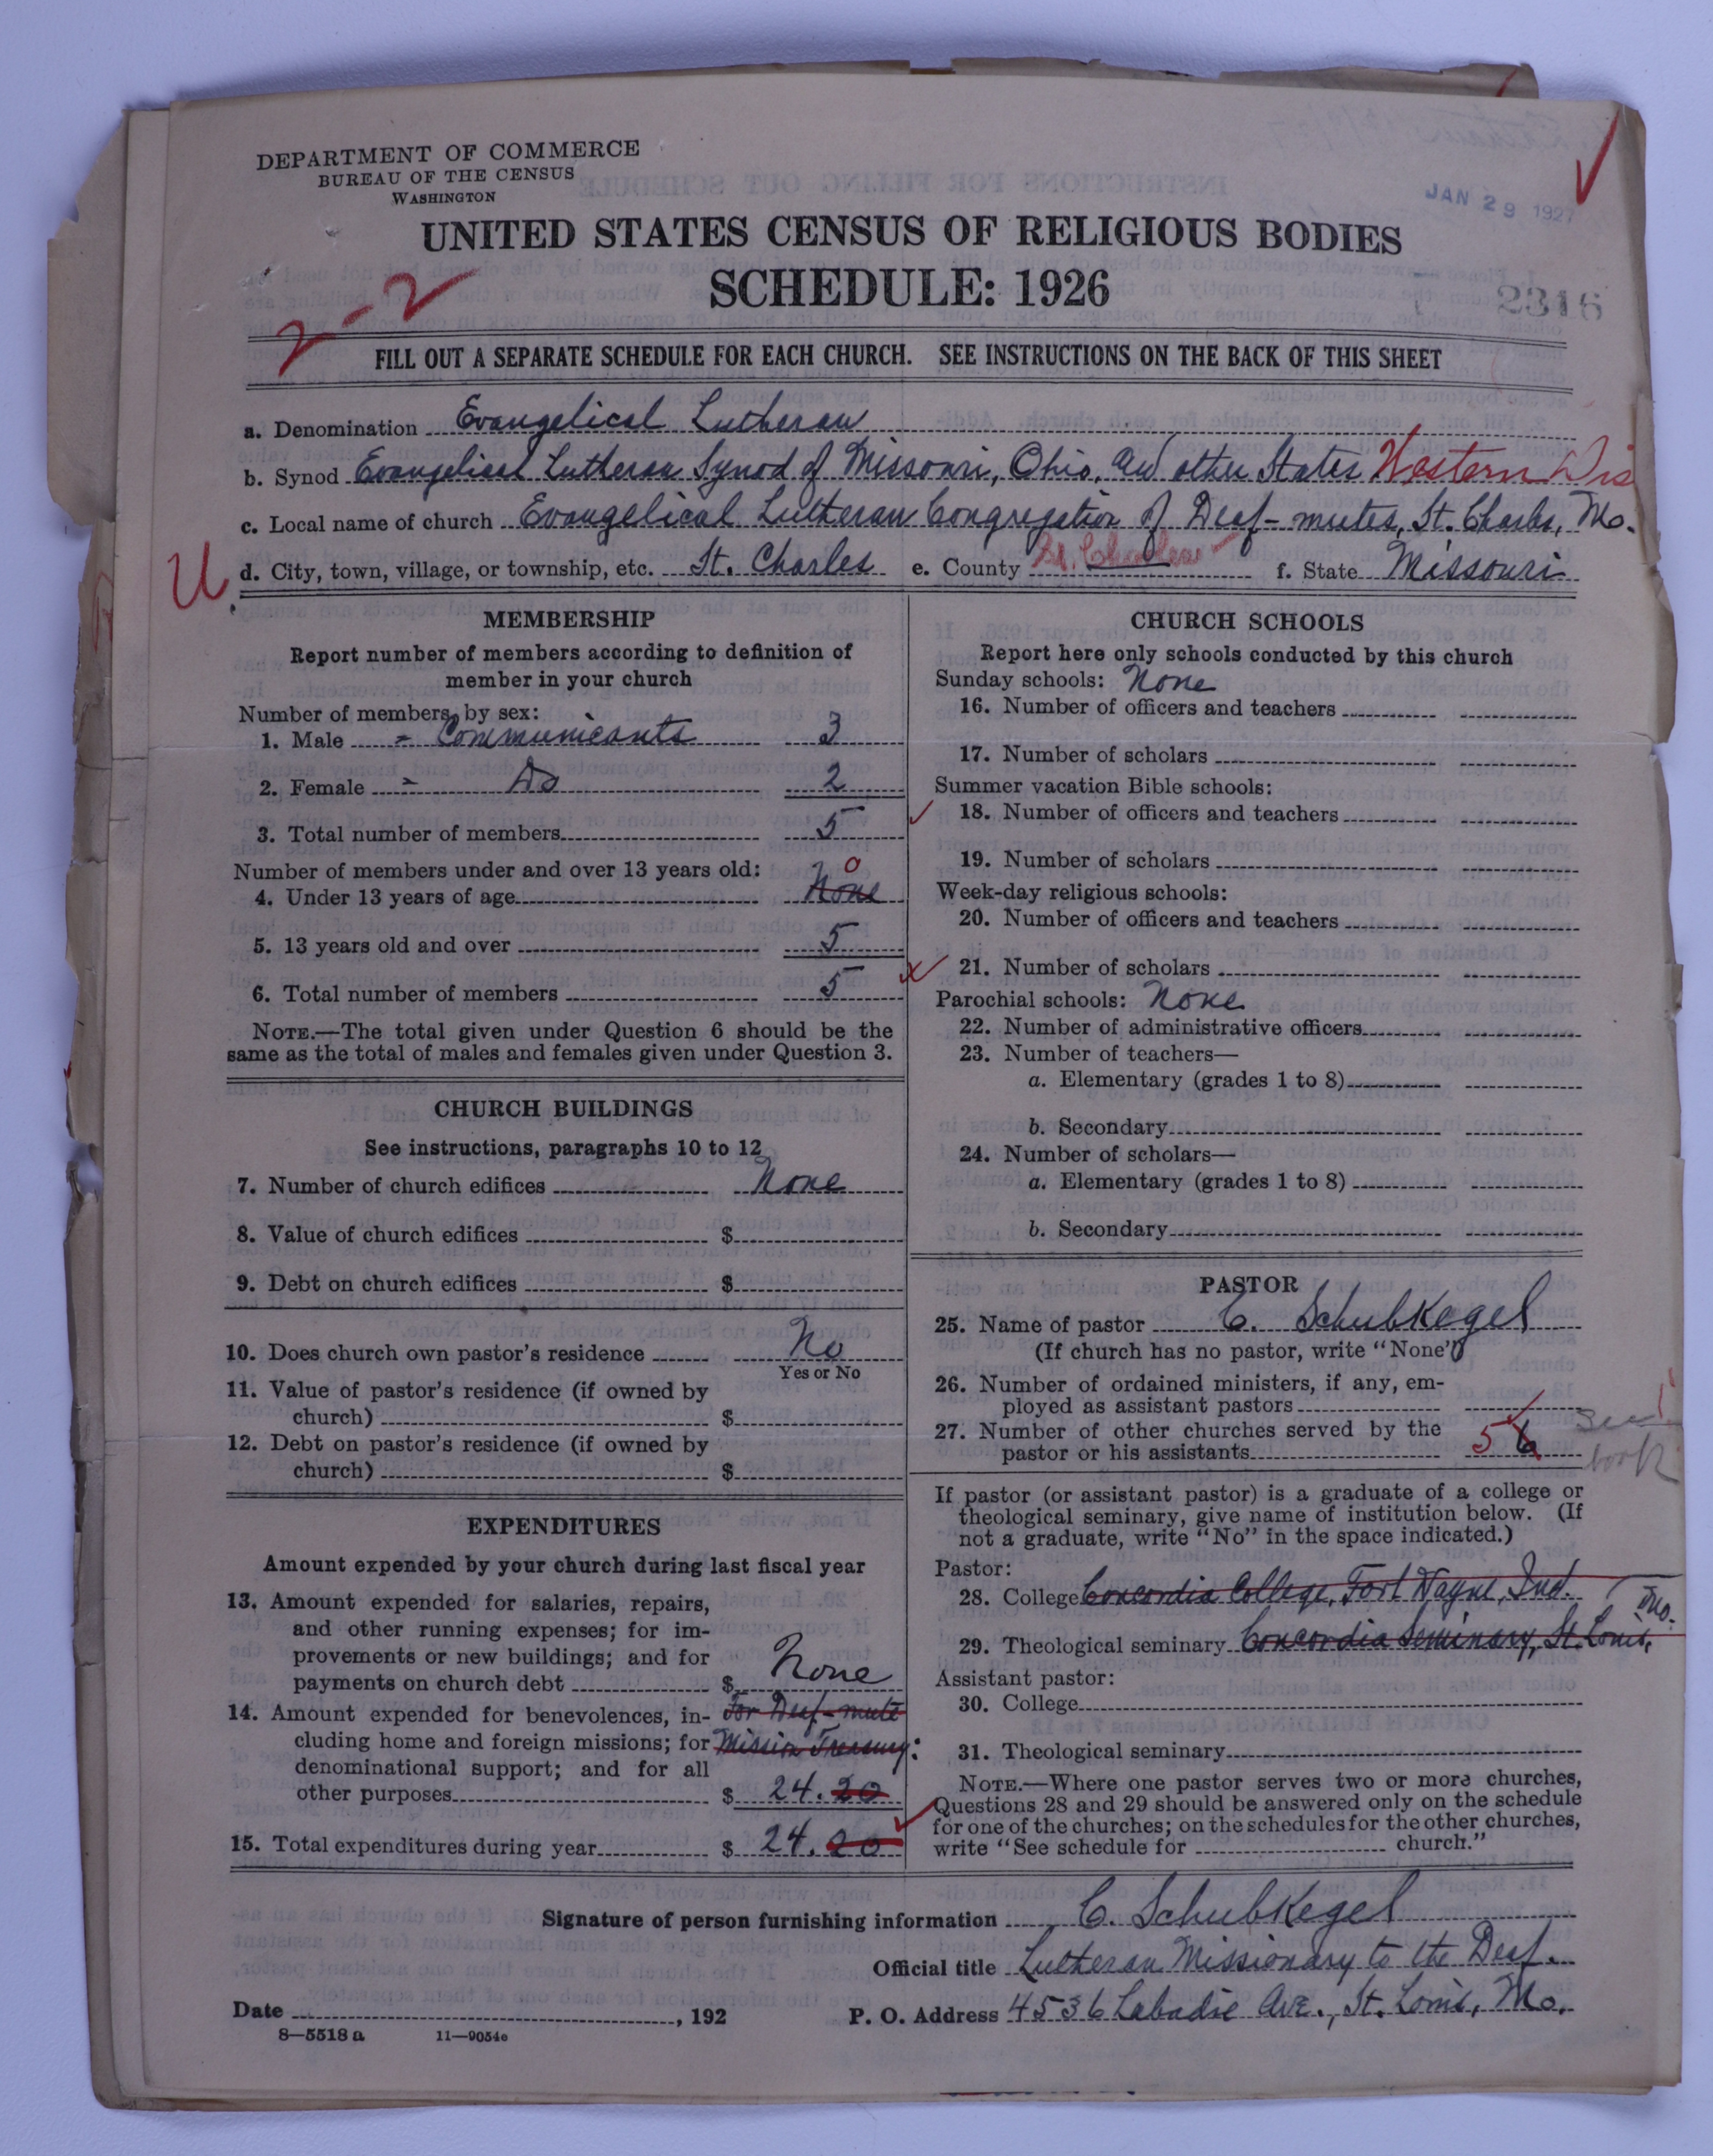 DEPARTMENT OF COMMERCE
BUREAU OF THE CENSUS
WASHINGTON
JAN 29 1927
UNITED STATES CENSUS OF RELIGIOUS BODIES
SCHEDULE: 1926
2316
2-2
FILL OUT A SEPARATE SCHEDULE FOR EACH CHURCH. SEE INSTRUCTIONS ON THE BACK OF THIS SHEET
a. Denomination Evangelical Lutheran
b. Synod Evangelical Lutheran Synod of Missouri, Ohio, and other States Western Dis
c. Local name of church Evangelical Lutheran Congregation of Deaf-mutes, St. Charles, Mo.
U
d. City, town, village, or township, etc. St. Charles e. County St. Charles f. State Missouri
MEMBERSHIP
Report number of members according to definition of
member in your church
Number of members, by sex:
1. Male - Communicants 3
2. Female - Do 2
3. Total number of members 5
Number of members under and over 13 years old:
4. Under 13 years of age None 0
5. 13 years old and over 5
6. Total number of members 5
NOTE.—The total given under Question 6 should be the
same as the total of males and females given under Question 3.
CHURCH BUILDINGS
See instructions, paragraphs 10 to 12
7. Number of church edifices None
8. Value of church edifices $
9. Debt on church edifices $
10. Does church own pastor's residence No
Yes or No
11. Value of pastor's residence (if owned by
church) $
12. Debt on pastor's residence (if owned by
church) $
EXPENDITURES
Amount expended by your church during last fiscal year
13. Amount expended for salaries, repairs,
and other running expenses; for im-
provements or new buildings; and for
payments on church debt $ None
14. Amount expended for benevolences, in- For Deaf-mute
cluding home and foreign missions; for Mission Treasury:
denominational support; and for all
other purposes $ 24.20
15. Total expenditures during year $ 24.20
CHURCH SCHOOLS
Report here only schools conducted by this church
Sunday schools: None
16. Number of officers and teachers
17. Number of scholars
Summer vacation Bible schools:
18. Number of officers and teachers
19. Number of scholars
Week-day religious schools:
20. Number of officers and teachers
21. Number of scholars
Parochial schools: None
22. Number of administrative officers
23. Number of teachers—
a. Elementary (grades 1 to 8)
b. Secondary
24. Number of scholars—
a. Elementary (grades 1 to 8)
b. Secondary
PASTOR
25. Name of pastor C. Schubkegel
(If church has no pastor, write "None")
26. Number of ordained ministers, if any, em-
ployed as assistant pastors
27. Number of other churches served by the
pastor or his assistants 5 6 See
book
If pastor (or assistant pastor) is a graduate of a college or
theological seminary, give name of institution below. (If
not a graduate, write "No" in the space indicated.)
Pastor:
28. College Concordia College, Fort Wayne, Ind.
29. Theological seminary Concordia Seminary, St. Louis, Mo.
Assistant pastor:
30. College
31. Theological seminary
NOTE.—Where one pastor serves two or more churches,
Questions 28 and 29 should be answered only on the schedule
for one of the churches; on the schedules for the other churches,
write "See schedule for church."
Signature of person furnishing information C. Schubkegel
Official title Lutheran Missionary to the Deaf.
Date , 192 P. O. Address 4536 Labadie Ave., St. Louis, Mo.
8—5518 a 11—9054c